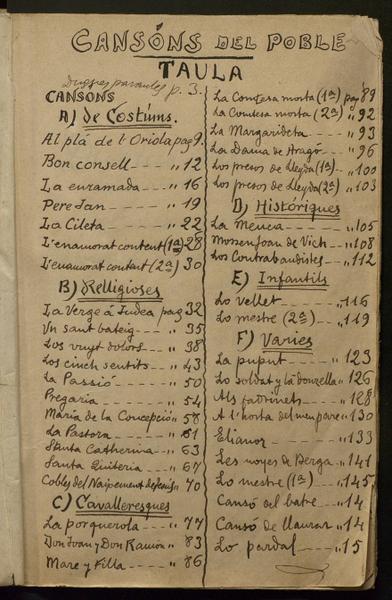 CANSÓNS DEL POBLE
TAULA
p. 3.
CANSONS
A) de Costums.
Al plá de l'Oriola pag 9.
Bon consell --- " 12
La enramada --- " 16
Pere Jan --- " 19
La Cileta --- " 22
L'enamorat content (1ª) 28
L'enamorat contant (2ª) 30
B) Relligioses
La Verge á Judea pag 32
Un sant bateig --- " 35
Los vuyt dolors --- " 38
Los cinch sentits --- " 43
La Passió --- " 50
Pregaria --- " 54
Maria de la Concepció " 58
La Pastora --- " 61
Santa Catherina --- " 63
Santa Quiteria --- " 67
Cobles del Naixement de Jesús " 70
C) Cavalleresques
La porquerola --- " 77
Don Joan y Don Ramón " 83
Mare y filla --- " 86
La Comtesa morta (1ª) pag 89
La Comtesa morta (2ª) " 92
La Margarideta --- " 93
La Dama de Aragó --- " 96
Los presos de Lleyda (1ª) --- " 100
Los presos de Lleyda (2ª) " 103
D) Históriques
La Menca --- " 105
Mossen Joan de Vich --- " 108
Los Contrabandistes --- " 112
E) Infantils
Lo vellet --- " 116
Lo mestre (2ª) --- " 119
F) Varies
La puput --- " 123
Lo soldat y la donzella " 126
Als fadrinets --- " 128
A l'horta del meu pare " 130
Elianor --- " 133
Les noyes de Berga --- " 141
Lo mestre (1ª) --- " 145
Cansó del batre --- " 14
Cansó de llaurar " 14
Lo pardal --- " 15